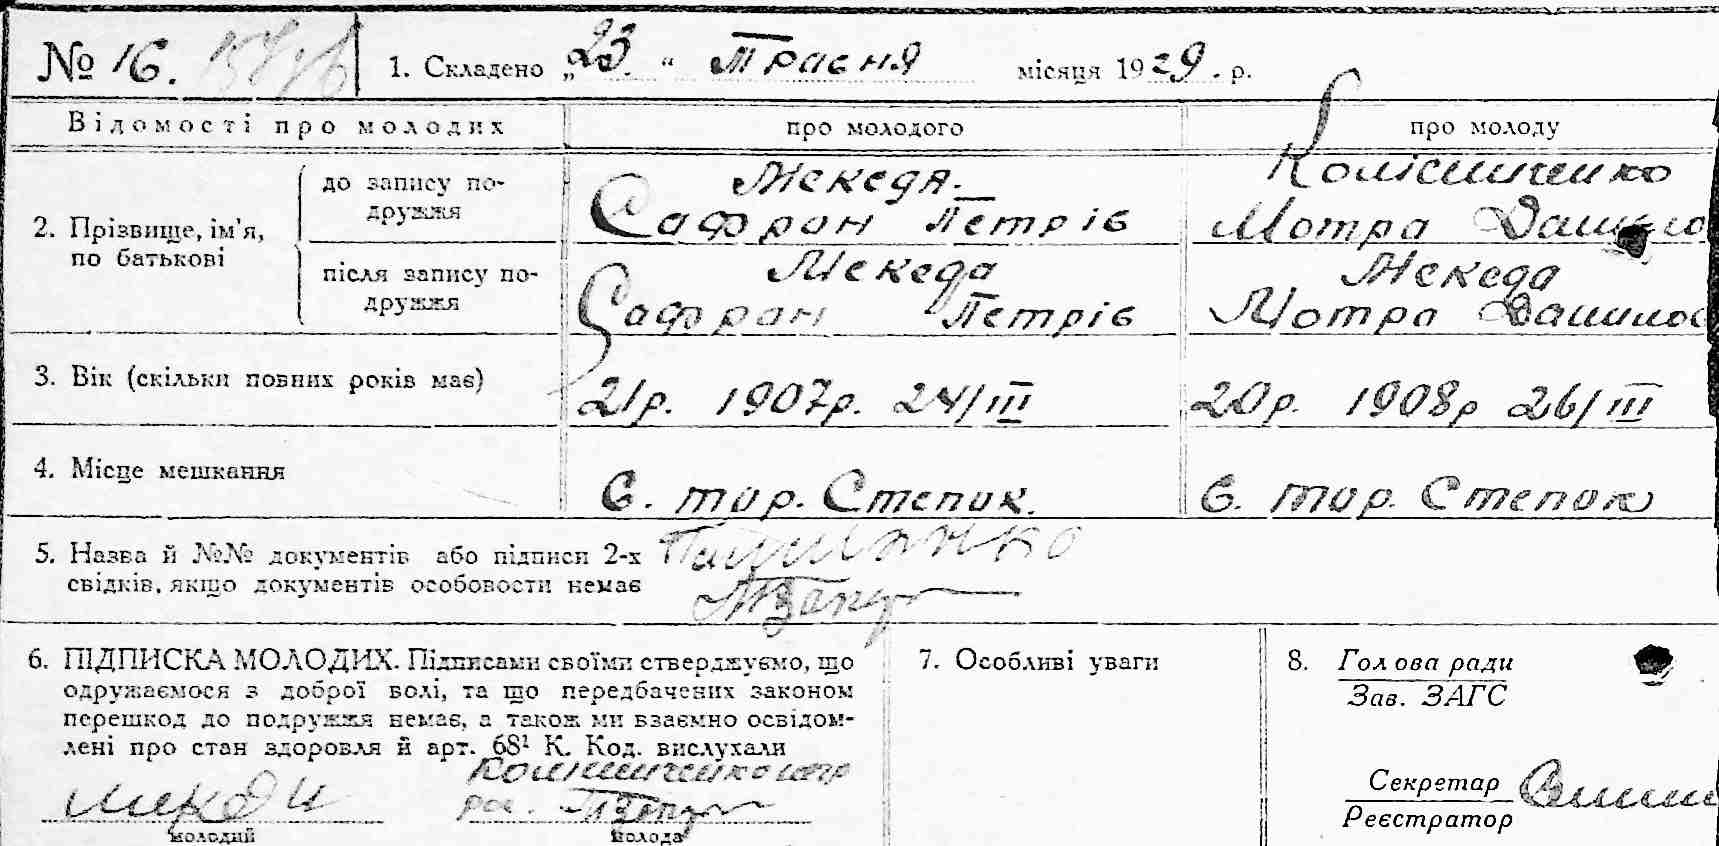 № 16. 1. Складено „23." Травня місяця 1929. р.
Відомості про молодих про молодого про молоду
2. Прізвище, ім'я, по батькові
до запису по-
дружжя
Мекедя.
Сафрон Петрів
Колісниченко
Мотра
після запису по-
дружжя
Мекеда
Сафрон Петрів
Мекеда
Мотра
3. Вік (скільки повних років має) 21р. 1907р. 24/III 20р. 1908р 26/III
4. Місце мешкання Є. тор. Степок. Є. тор. Степок
5. Назва й №№ документів або підписи 2-х
свідків, якщо документів особовости немає
6. ПІДПИСКА МОЛОДИХ. Підписами своїми стверджуємо, що
одружаємося з доброї волі, та що передбачених законом
перешкод до подружжя немає, а також ми взаємно освідом-
лені про стан здоровля й арт. 68¹ К. Код. вислухали
молодий молода
7. Особливі уваги
8. Голова ради
Зав. ЗАГС
Секретар
Реєстратор